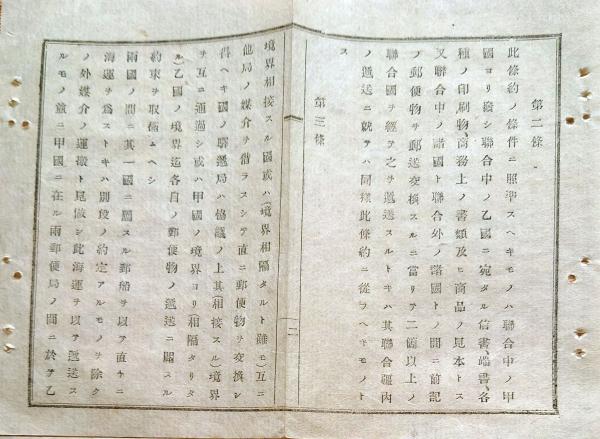 第二條
此條約ノ條件ニ照準スヘキモノハ聯合中ノ甲
國ヨリ發シ聯合中ノ乙國ニ宛タル信書、端書、各
種ノ印刷物、商務上ノ書類及ヒ商品ノ見本トス
又聯合中ノ諸國ト聯合外ノ諸國トノ間ニ前記
ノ郵便物ヲ郵送交換スルニ當リ二個以上ノ
聯合國ヲ經テ之ヲ遞送スルトキハ其聯合疆內
ノ遞送ニ就テハ同樣此條約ニ從フヘキモノト
ス
第三條
境界相接スル國或ハ(境界相隔タルト雖モ)互ニ
他局ノ媒介ヲ借ラスシテ直ニ郵便物ヲ交換シ
得ヘキ國ノ驛遞局ハ協議ノ上其(相接スル)境界
ヲ互ニ通過シ或ハ甲國ノ境界ヨリ(相隔タリタ
ル)乙國ノ境界迄各自ノ郵便物ノ遞送ニ關スル
約束ヲ取極ムヘシ
兩國ノ間ニ其一國ニ屬スル郵船ヲ以テ直チニ
海運ヲ爲ストキハ別段ノ約定アルモノヲ除ク
ノ外媒介ノ運搬ト見做シ此海運ヲ以テ遞送ス
ルモノ並ニ甲國ニ在ル兩郵便局ノ間ニ於テ乙
二